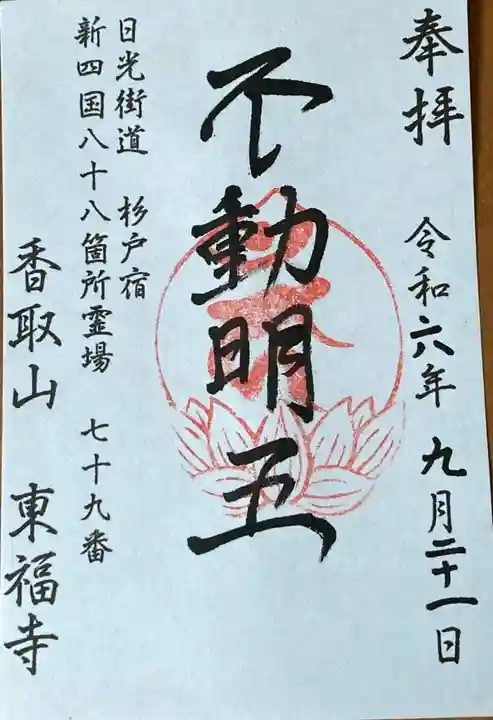 奉拝
令和六年 九月二十一日
不動明王
日光街道 杉戸宿
新四国八十八箇所霊場 七十九番
香取山 東福寺